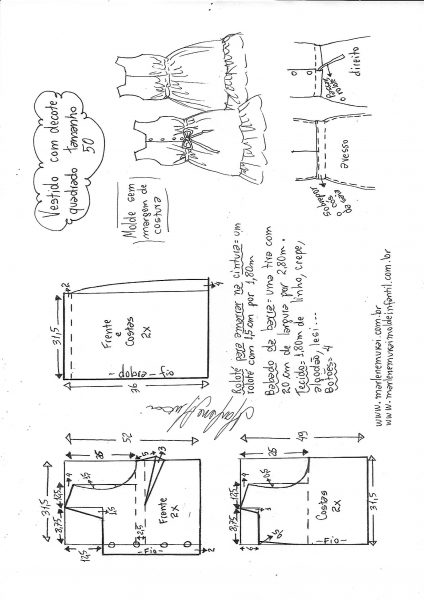 Vestido com decote
quadrado tamanho
50
Molde sem
margem de
costura
direito
avesso
31,5
2
4
Frente
e
Costas
2x
dobra
36
Rolotê para amarrar na cintura = um
rolotê com 1,5cm por 1,80m
Babado da barra = uma tira com
20 cm de largura por 2,80m.
Tecido = 1,80m de linho, crepe,
algodão, lesi...
Botões = 4
www.marlenemukai.com.br
www.marlenemukaimoldeinfantil.com.br
31,5
8,75
12,5
4
12,5
1,5
25
52
5
3
2,5
Frente
2x
- Fio -
2
31,5
8,75
12,5
4
6
25
49
Costas
2x
- Fio -
31,5